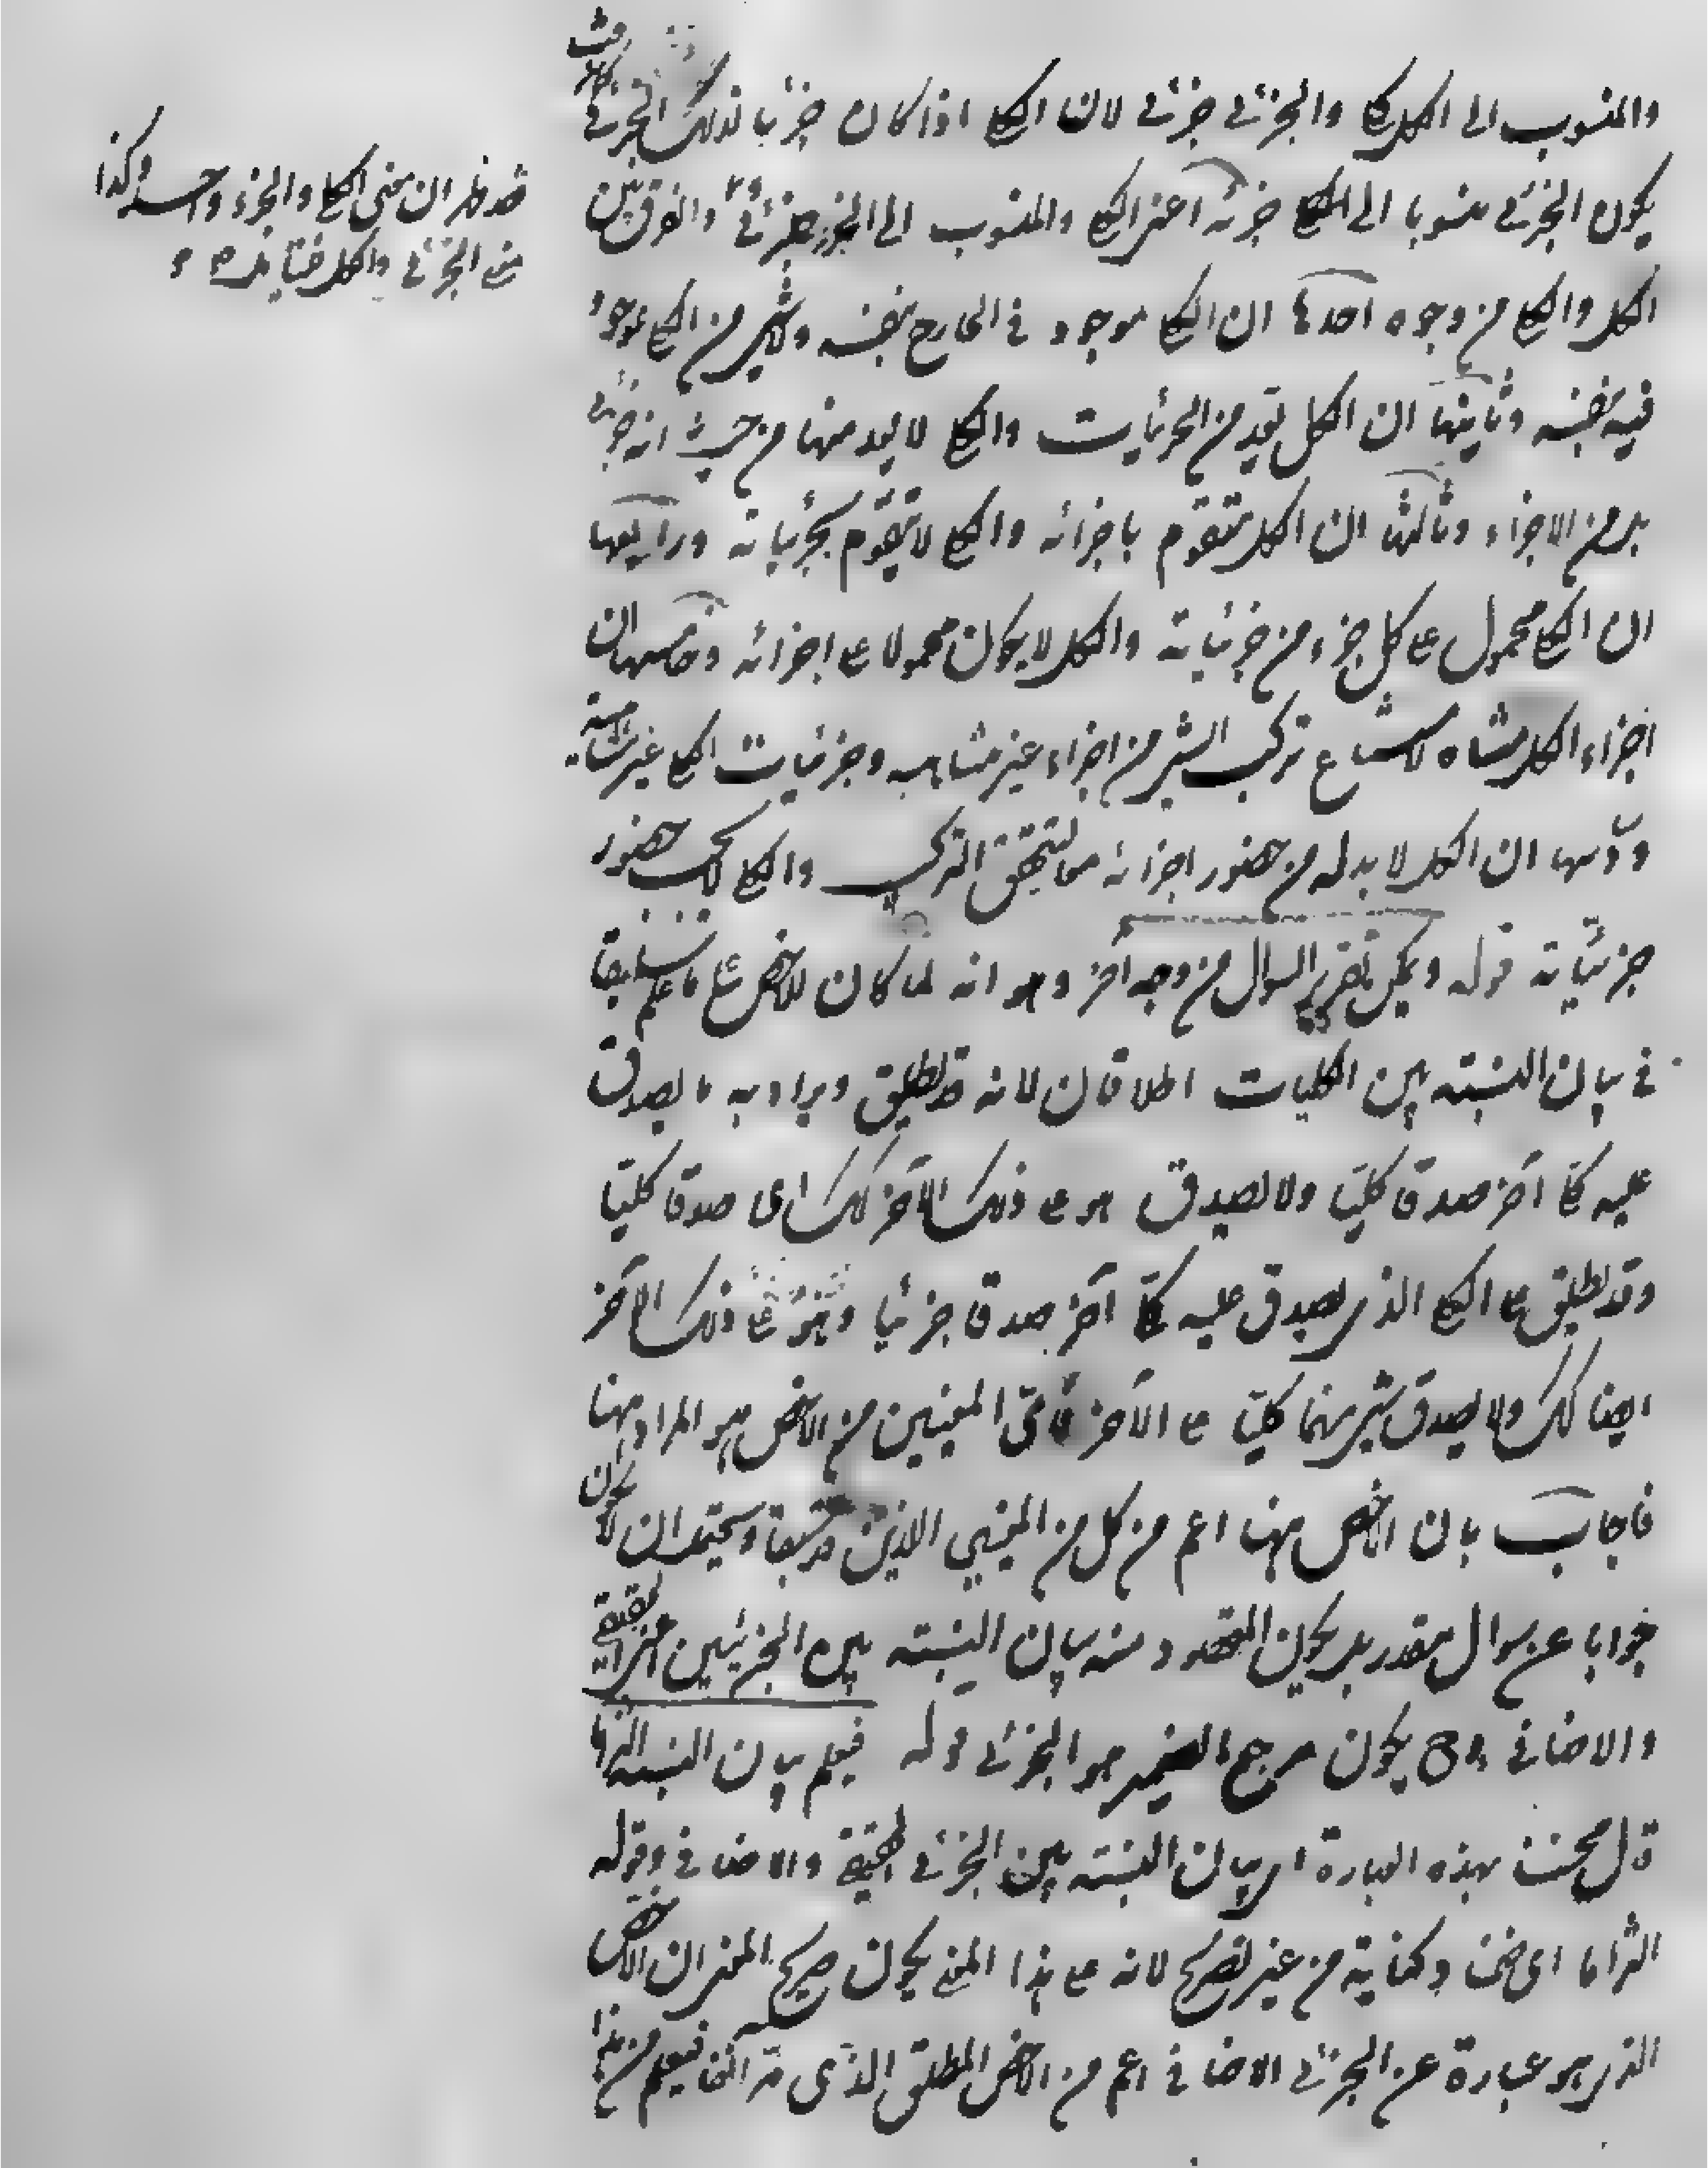 والمنسوب الى الكل كلي والجزئي جزئي لان الكلي اذا كان جزئيا لذلك الجزئي
يكون الجزئي منسوبا الى الكلي جزئه اعنى الكلي والمنسوب الى الجزء جزئي والفرق بين
الكل والكلي من وجوه احدها ان الكل موجود في الخارج بنفسه ولا شئ من الكلي بموجود
فيه بنفسه وثانيها ان الكل يعد من الجزئيات والكلي لا يعد منها من حيث انه جزئي
بل من الاجزاء وثالثها ان الكل متقوم باجزائه والكلي لا يتقوم بجزئياته ورابعها
ان الكلي محمول على كل جزء من جزئياته والكل لا يكون محمولا على اجزائه وخامسها ان
اجزاء الكل متناه لامتناع تركب الشئ من اجزاء غير متناهية وجزئيات الكلي غير متناهية
وسادسها ان الكل لا بد له من حضور اجزائه معا ليتحقق التركيب والكلي لا يجب حضور
جزئياته قوله ويمكن تقرير السوال من وجه آخر وهو انه لما كان للاخص على ما علم سابقا
في بيان النسبة بين الكليات اطلاقان لانه قد يطلق ويراد به ما يصدق
عليه كلي آخر صدقا كليا ولا يصدق هو على ذلك الآخر كذلك اى صدقا كليا
وقد يطلق على الكلي الذي يصدق عليه كلي آخر صدقا جزئيا وهو على ذلك الآخر
ايضا كذلك ولا يصدق شئ منهما كليا على الآخر فاى المعنيين من الاخص هو المراد ههنا
فاجاب بان الاخص ههنا اعم من كل من المعنيين الاذين مر سبقا ويحتمل ان لا يكون
جوابا عن سوال مقدر بل يكون المقصود منه بيان النسبة بين الجزئيين اعنى الحقيقي
والاضافي يكون مرجع الضمير هو الجزئي قوله فيعلم بيان النسبة التزاما
قال محشى بهذه العبارة اى بيان النسبة بين الجزئي الحقيقي والاضافي وقوله
التزاما اى ضمنا وكناية من غير تصريح لانه على هذا المعنى يكون صريح المعنى ان الاخص
الذي هو عبارة عن الجزئي الاضافي اعم من الاخص المطلق الذى مر آنفا فيعلم من هذا
قد ظهر ان معنى الكلي والجزء واحد وكذا
معنى الجزئي والكل